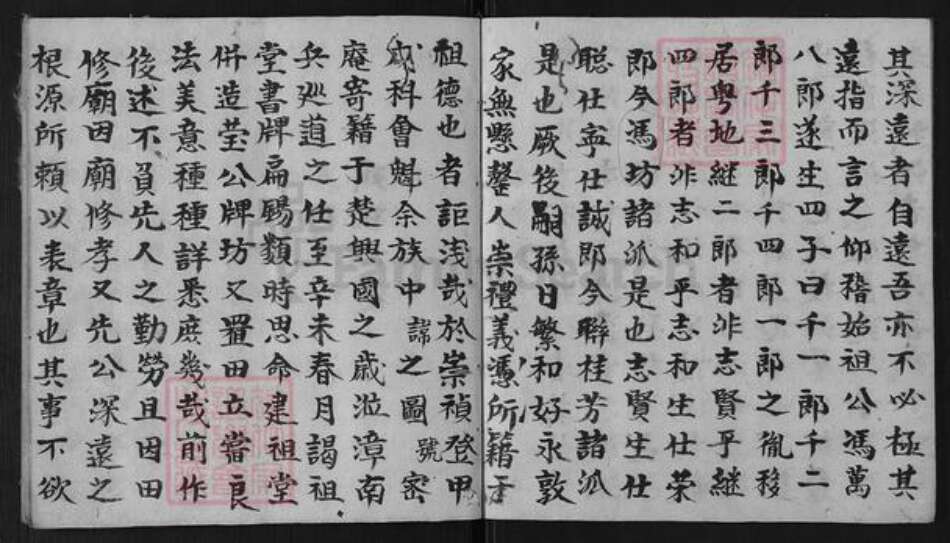 其深遠者自遠吾亦不必極其
遠指而言之仰稽始祖公馮萬
八郎遂生四子曰千一郎千二
郎千三郎千四郎一郎之胤移
居粵地継二郎者非志賢乎継
四郎者非志和乎志和生仕荣
郎今馮坊諸派是也志賢生仕
聪仕寧仕誠郎今聯桂芳諸派
是也厥後嗣孫日繁和好永敦
家無懸罄人崇禮義慿所籍于
祖德也者詎浅哉於崇禎登甲
戍科會魁余族中諱之圖號密
庵寄籍于楚興國之歲涖漳南
兵廵道之任至辛未春月謁祖
堂書牌扁賜類時思命建祖堂
併造莹公牌坊又置田立嘗良
法美意種種詳悉庶幾哉前作
後述不負先人之勤勞且因田
修廟因廟修孝又先公深遠之
根源所頼以表章也其事不欲
FamilySearch